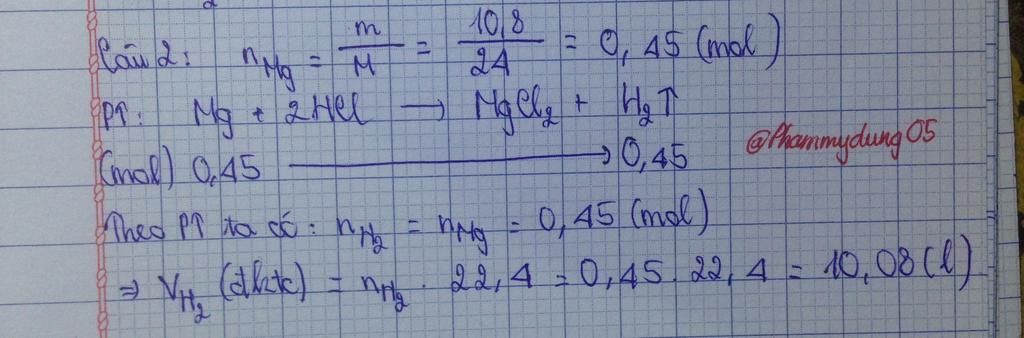 Câu 2: n_Mg = m/M = 10,8/24 = 0,45 (mol)
PT: Mg + 2HCl → MgCl₂ + H₂↑
(mol) 0,45 → 0,45
@Phammydung05
Theo PT ta có: n_H₂ = n_Mg = 0,45 (mol)
⇒ V_H₂ (đktc) = n_H₂ . 22,4 = 0,45 . 22,4 = 10,08 (l)